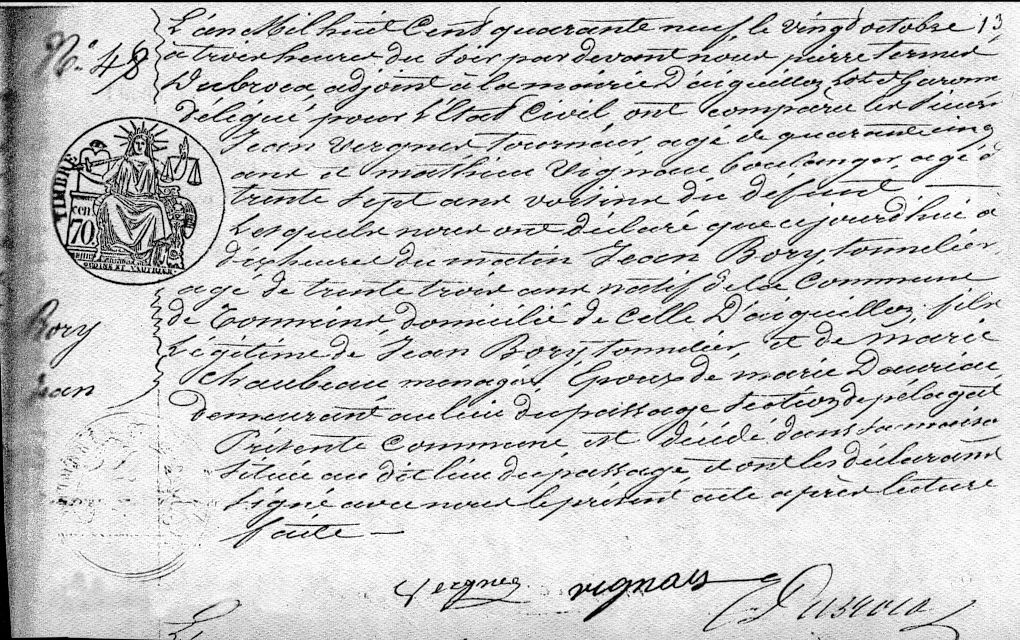 13
N° 48
L'an Mil huit Cent quarante neuf, le vingt octobre
a trois heures du soir par devant nous pierre
Dubroca, adjoint à la mairie D'aiguillon, Lot et Garonne
délégué pour l'Etat Civil ont comparu les sieurs
Jean Vergnes tourneur, agé de quarante cinq
ans et mathieu Vignau boulanger, agé de
trente sept ans voisins du défunt
Lesquels nous ont déclaré que aujourd'hui a
dix heures du matin Jean Bory, tonnelier,
agé de trente trois ans natif de la Commune
de Tonneins, domicilié de Celle D'aiguillon, fils
Légitime de Jean Bory, tonnelier, et de marie
Chaubeau menagère, Epoux de marie Dauriac,
demeurant au lieu du passage section de pélagat
Présente Commune est décédé dans sa maison
située au dit lieu du passage, et ont les déclarants
signé avec nous le présent acte après lecture
faite —
TIMBRE
cen
70.
Bory
Jean
Vergnes vignau Dubroca